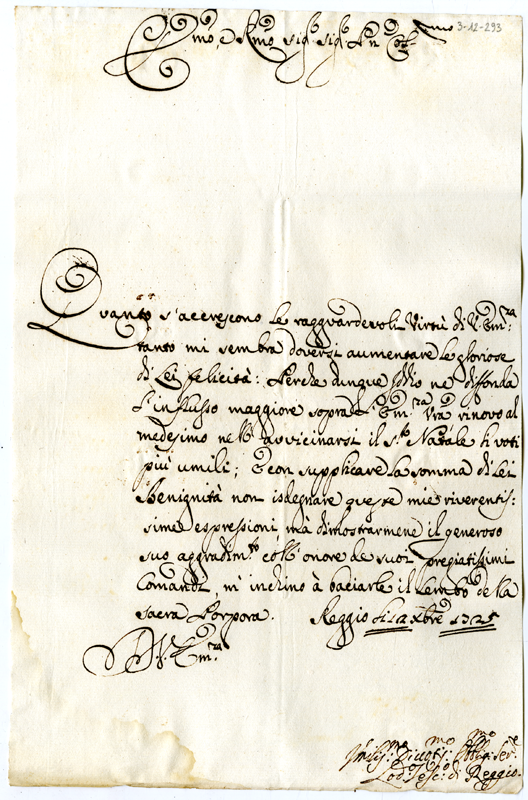 3-12-293
Emo, e Rmo Sigr. Sigr. Pn Col.mo
Quanto s'accrescono le ragguardevoli Virtù di V. Em:za
tanto mi sembra doversi aumentare le gloriose
di Lei felicità: Perche dunque Iddio ne diffonda
l'influsso maggiore sopra l'Em:za Vra rinovo al
medesimo nell' avvicinarsi il s.to Natale li voti
più umili; E con supplicare la somma di Lei
Benignità non isdegnare queste mie riverentis:
sime espressioni, mà dimostrarmene il generoso
suo aggradim.to coll' onore de suoi pregiatissimi
Comandi, m' inchino à baciarle il Lembo della
sacra Porpora. Reggio li 12 Xbre 1725
D. V. Em.za
Umilis:mo Divotis:mo Obblig:mo Ser.e
Lod. Vesc: di Reggio.